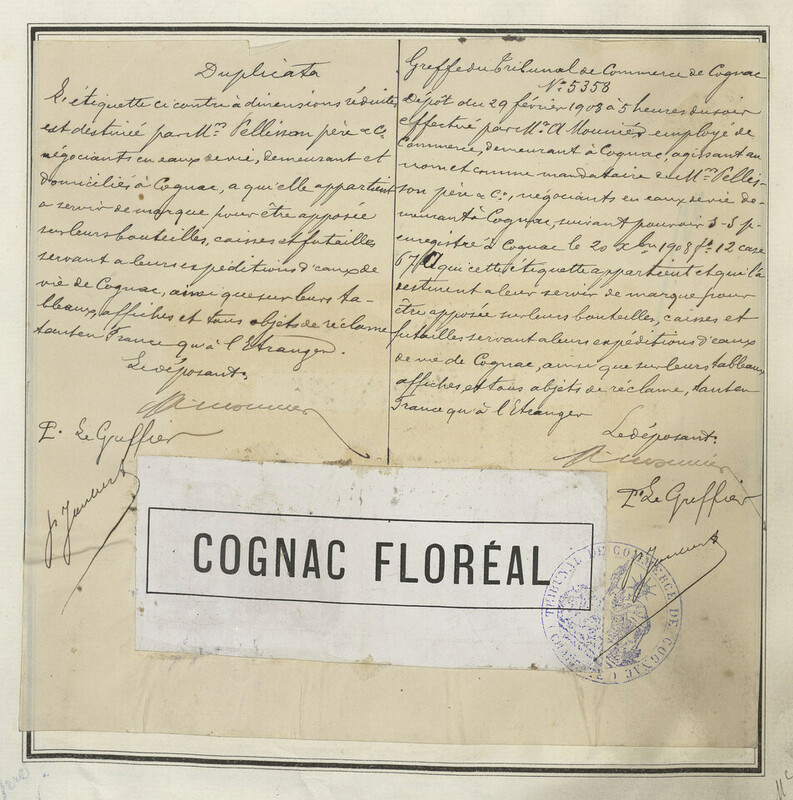 Duplicata
L'étiquette ci contre à dimensions réduites
est destinée par Mrs Pellisson père & Co
négociants en eaux de vie, demeurant et
domiciliés à Cognac, a qu'elle appartient
a servir de marque pour être apposée
sur leurs bouteilles, caisses et futailles
servant a leurs expéditions d'eaux de
vie de Cognac, ainsi que sur leurs ta-
bleaux, affiches et tous objets de réclame
tant en France qu'à l'Etranger.
Le déposant:
A Mounier
Pr. Le Greffier
Greffe du Tribunal de Commerce de Cognac
No 5358
Dépôt du 29 février 1908 à 5 heures du soir
effectué par Mr A Mounier employé de
Commerce, demeurant à Cognac, agissant au
nom et comme mandataire de Mrs Pellis-
son père & Co, négociants en eaux de vie de-
meurant à Cognac, suivant pouvoir s-s p-
enregistré à Cognac le 20 Xbre 1905 fo 12 case
67 à qui cette étiquette appartient et qui la
destinent a leur servir de marque pour
être apposée sur leurs bouteilles, caisses et
futailles servant a leurs expéditions d'eaux
de vie de Cognac, ainsi que sur leurs tableaux
affiches, et tous objets de réclame, tant en
France qu'à l'Etranger
Le déposant:
A Mounier
Pr Le Greffier
COGNAC FLORÉAL
TRIBUNAL DE COMMERCE DE COGNAC